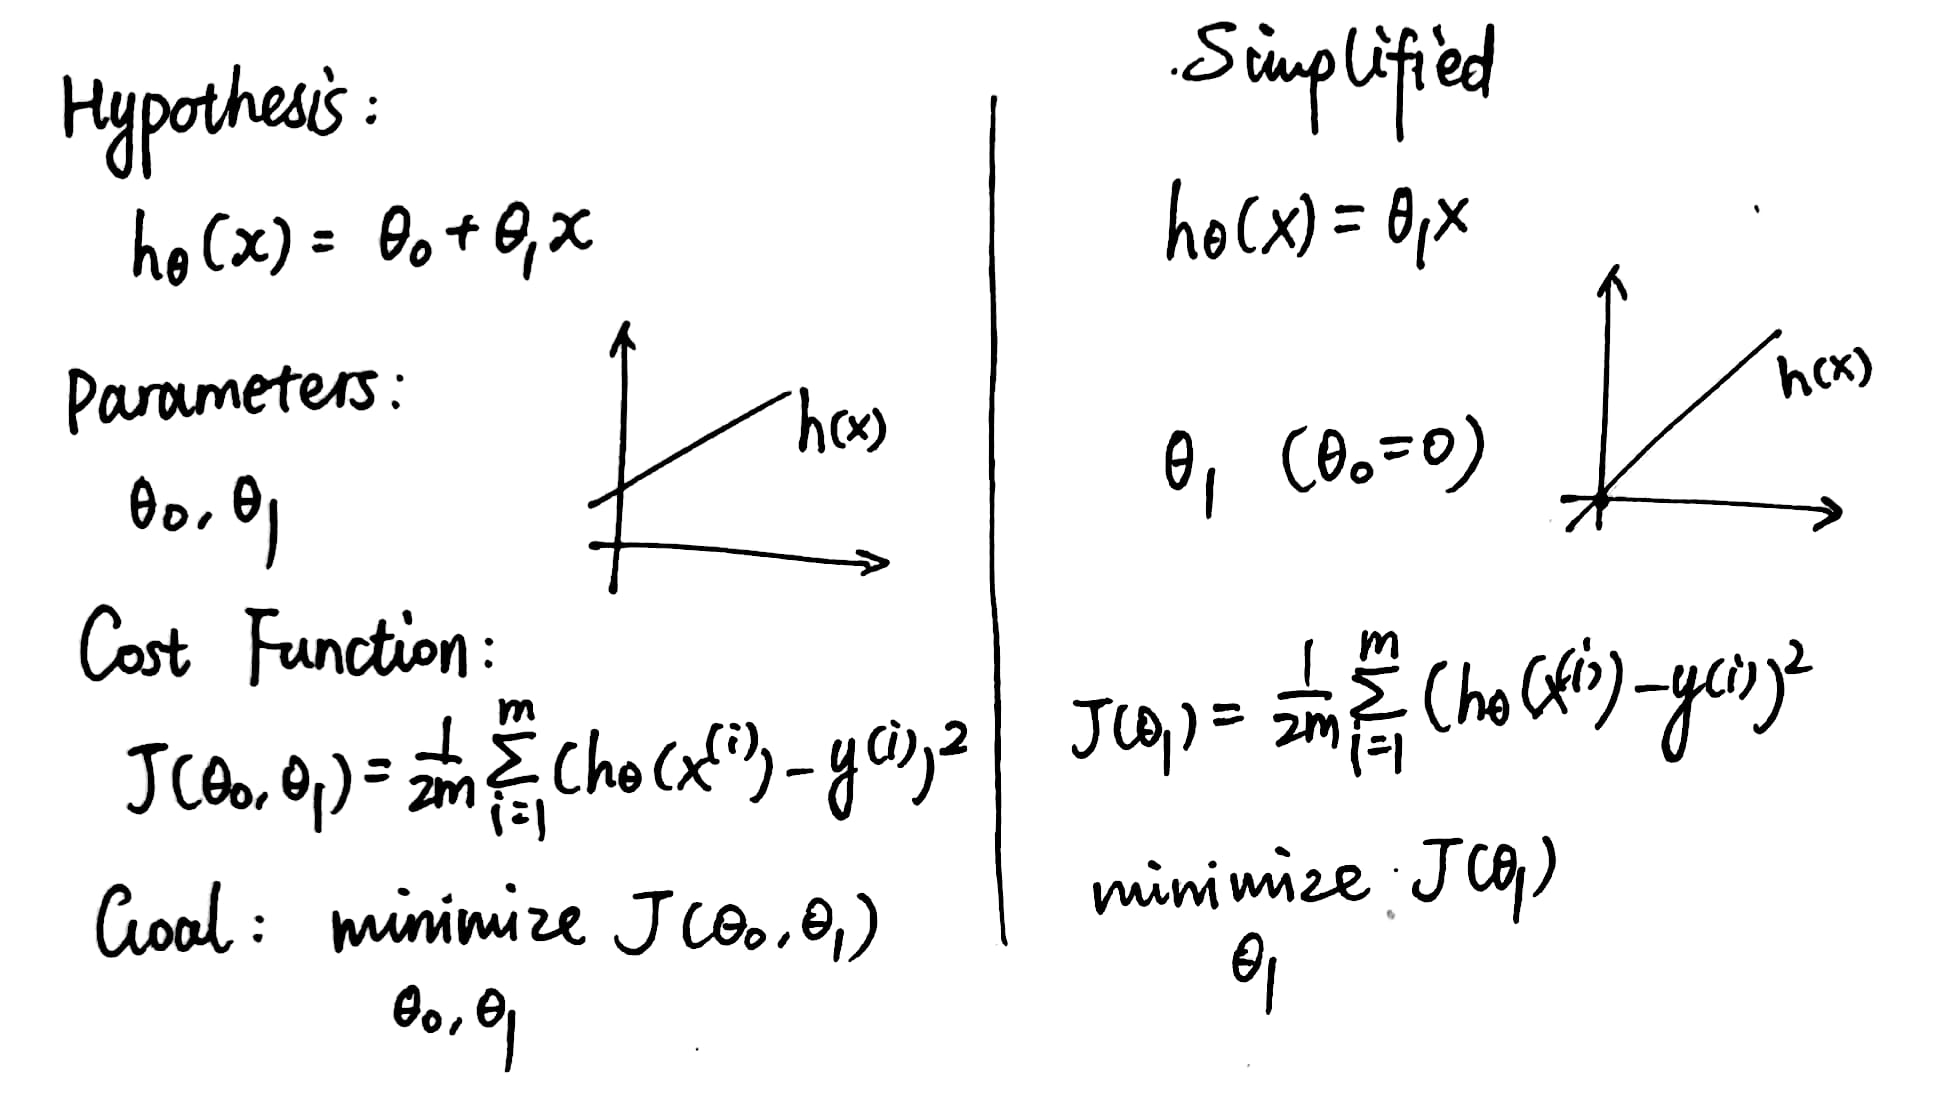 Hypothesis:
hθ(x) = θ₀ + θ₁x
Parameters:
θ₀, θ₁
h(x)
Cost Function:
J(θ₀, θ₁) = 1/2m ∑ᵢ₌₁ᵐ (hθ(x⁽ⁱ⁾) - y⁽ⁱ⁾)²
Goal: minimize J(θ₀, θ₁)
θ₀, θ₁
Simplified
hθ(x) = θ₁x
θ₁ (θ₀=0)
h(x)
J(θ₁) = 1/2m ∑ᵢ₌₁ᵐ (hθ(x⁽ⁱ⁾) - y⁽ⁱ⁾)²
minimize J(θ₁)
θ₁